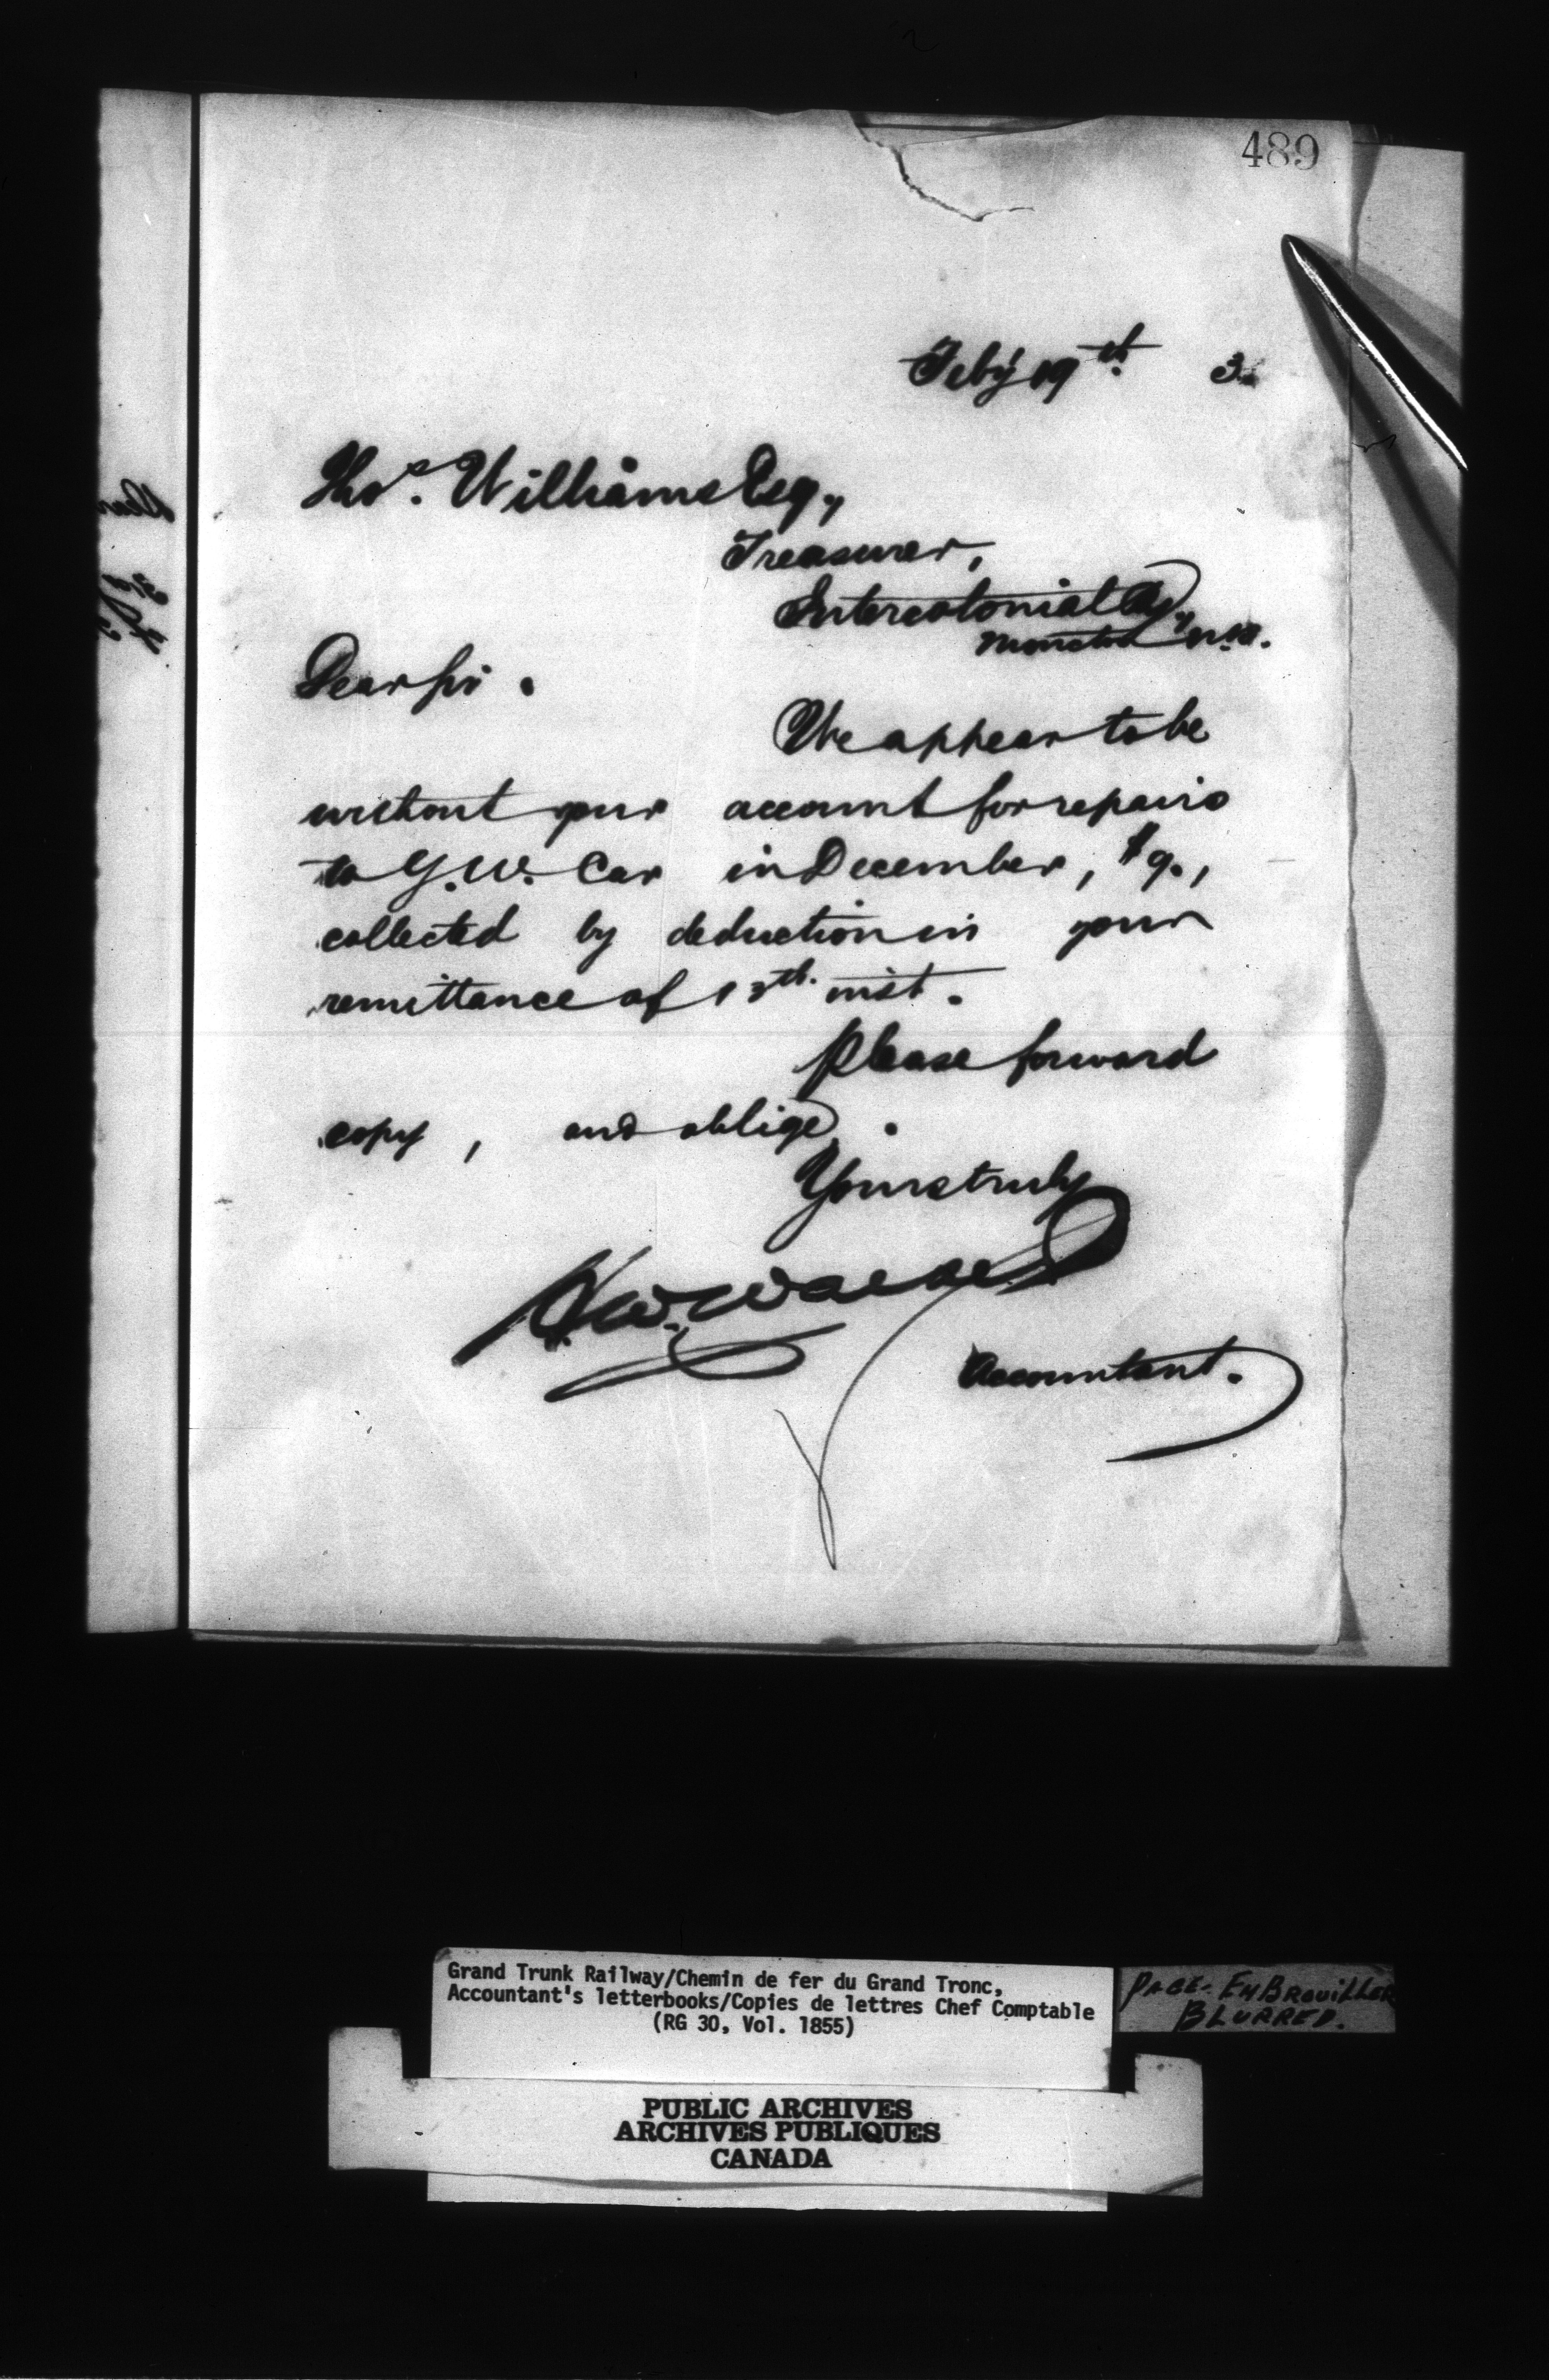 489
Feby 19th 3.
Thos. Williams Esq.,
Treasurer,
Intercolonial Ry,
Moncton N.B.
Dear Sir.
We appear to be
without your account for repairs
to G.W. Car in December, $9.,
collected by deduction in your
remittance of 13th inst.
Please forward
copy, and oblige.
Yours truly
Accountant.
Grand Trunk Railway/Chemin de fer du Grand Tronc,
Accountant's letterbooks/Copies de lettres Chef Comptable
(RG 30, Vol. 1855)
PAGE. EMBROUILLER
BLURRED.
PUBLIC ARCHIVES
ARCHIVES PUBLIQUES
CANADA